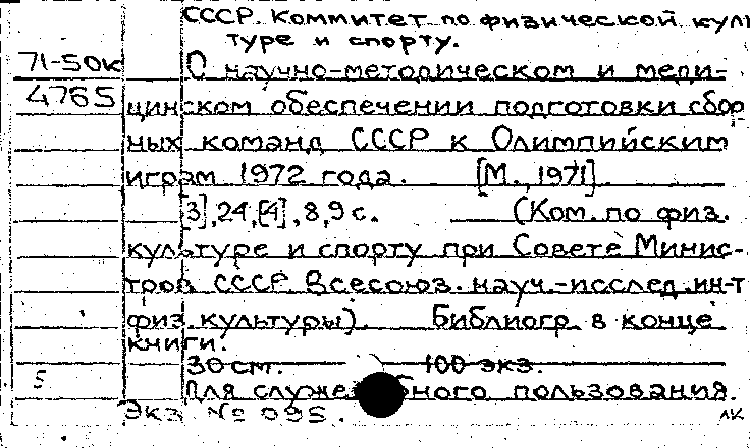 СССР. Коммитет по физической куль
туре и спорту.
71-50к О научно-методическом и меди-
4765 цинском обеспечении подготовки сбор
ных команд СССР к Олимпийским
играм 1972 года. [М., 1971].
[3],24,[4],8,9 с. (Ком. по физ.
культуре и спорту при Совете Минис-
тров СССР. Всесоюз. науч.-исслед. ин-т
физ. культуры). Библиогр. в конце
книги.
30 см. 100 экз.
5 Для служебного пользования.
Экз № 095. лк